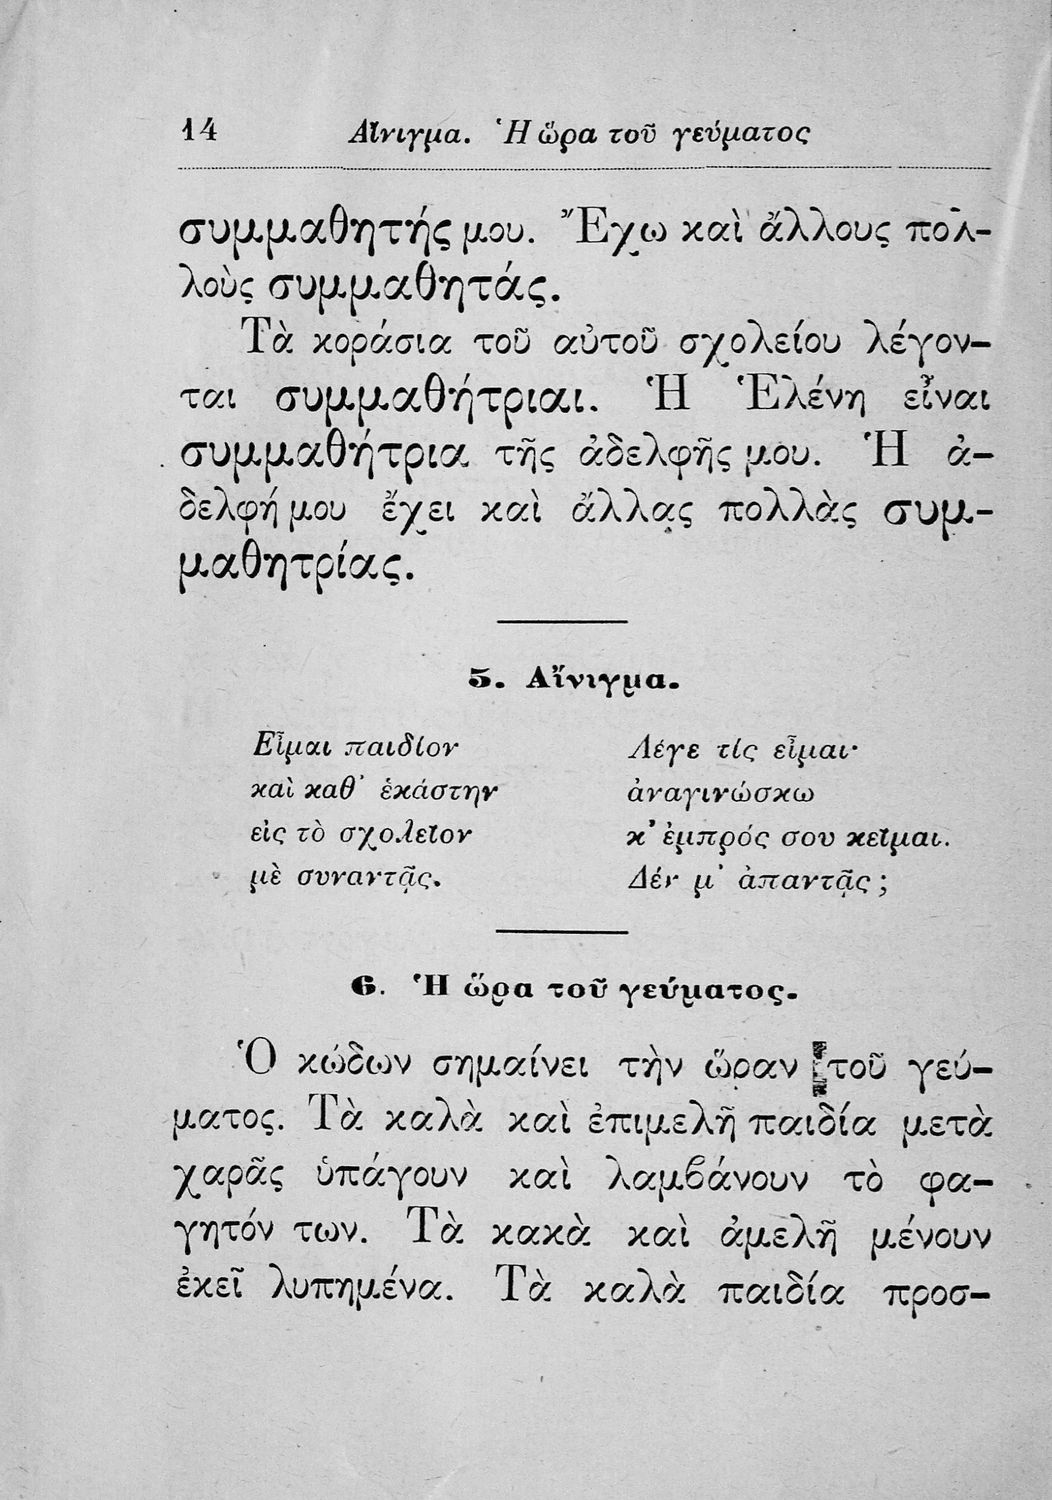 14 Αἴνιγμα. Ἡ ὥρα τοῦ γεύματος
συμμαθητής μου. Ἔχω καὶ ἄλλους πολ-
λοὺς συμμαθητάς.
Τὰ κοράσια τοῦ αὐτοῦ σχολείου λέγον-
ται συμμαθήτριαι. Ἡ Ἑλένη εἶναι
συμμαθήτρια τῆς ἀδελφῆς μου. Ἡ ἀ-
δελφή μου ἔχει καὶ ἄλλας πολλὰς συμ-
μαθητρίας.
5. Αἴνιγμα.
Εἶμαι παιδίον
καὶ καθ' ἑκάστην
εἰς τὸ σχολεῖον
μὲ συναντᾷς.
Λέγε τίς εἶμαι·
ἀναγινώσκω
κ' ἐμπρός σου κεῖμαι.
Δέν μ' ἀπαντᾷς;
6. Ἡ ὥρα τοῦ γεύματος.
Ὁ κώδων σημαίνει τὴν ὥραν τοῦ γεύ-
ματος. Τὰ καλὰ καὶ ἐπιμελῆ παιδία μετὰ
χαρᾶς ὑπάγουν καὶ λαμβάνουν τὸ φα-
γητόν των. Τὰ κακὰ καὶ ἀμελῆ μένουν
ἐκεῖ λυπημένα. Τὰ καλὰ παιδία προσ-